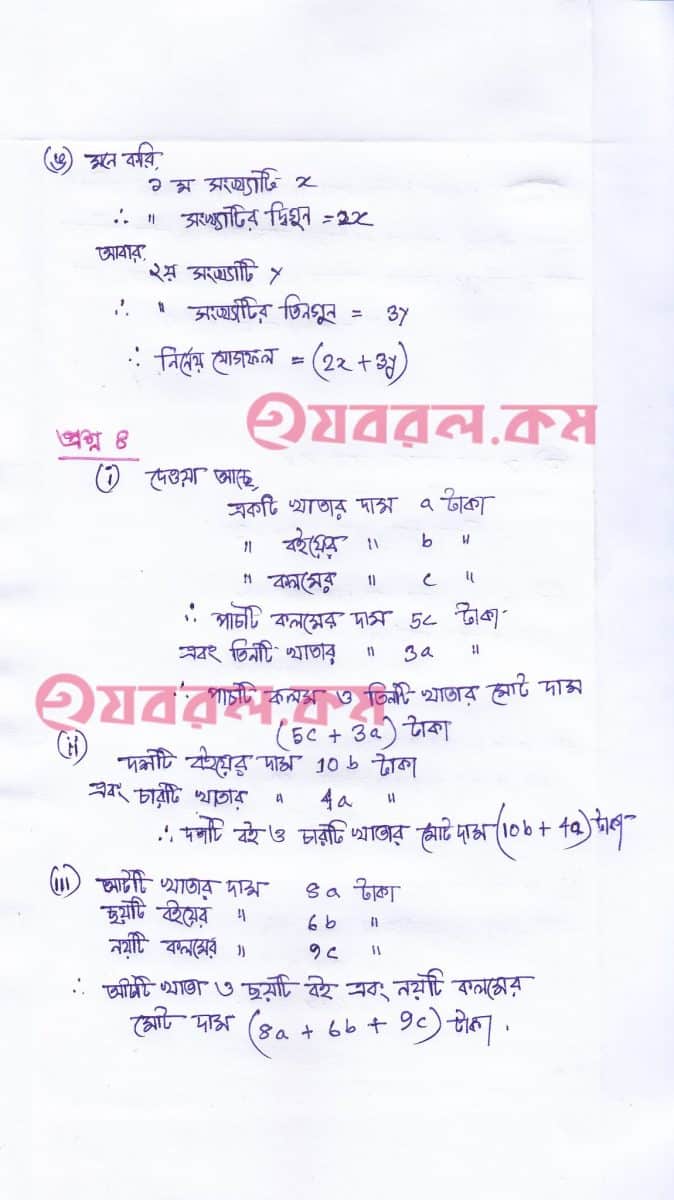 (ঙ) মনে করি,
১ম সংখ্যাটি x
∴ " সংখ্যাটির দ্বিগুন = 2x
আবার,
২য় সংখ্যাটি y
∴ " সংখ্যাটির তিনগুন = 3y
∴ নির্নেয় যোগফল = (2x + 3y)
হযবরল.কম
প্রশ্ন ৪
(i) দেওয়া আছে,
একটি খাতার দাম a টাকা
" বইয়ের " b "
" কলমের " c "
∴ পাচটি কলমের দাম 5c টাকা
এবং তিনটি খাতার " 3a "
হযবরল.কম
∴ পাচটি কলম ও তিনটি খাতার মোট দাম
(5c + 3a) টাকা
(ii)
দশটি বইয়ের দাম 10b টাকা
এবং চারটি খাতার " 4a "
∴ দশটি বই ও চারটি খাতার মোট দাম (10b + 4a) টাকা
(iii) আটটি খাতার দাম 8a টাকা
ছয়টি বইয়ের " 6b "
নয়টি কলমের " 9c "
∴ আটটি খাতা ও ছয়টি বই এবং নয়টি কলমের
মোট দাম (8a + 6b + 9c) টাকা.